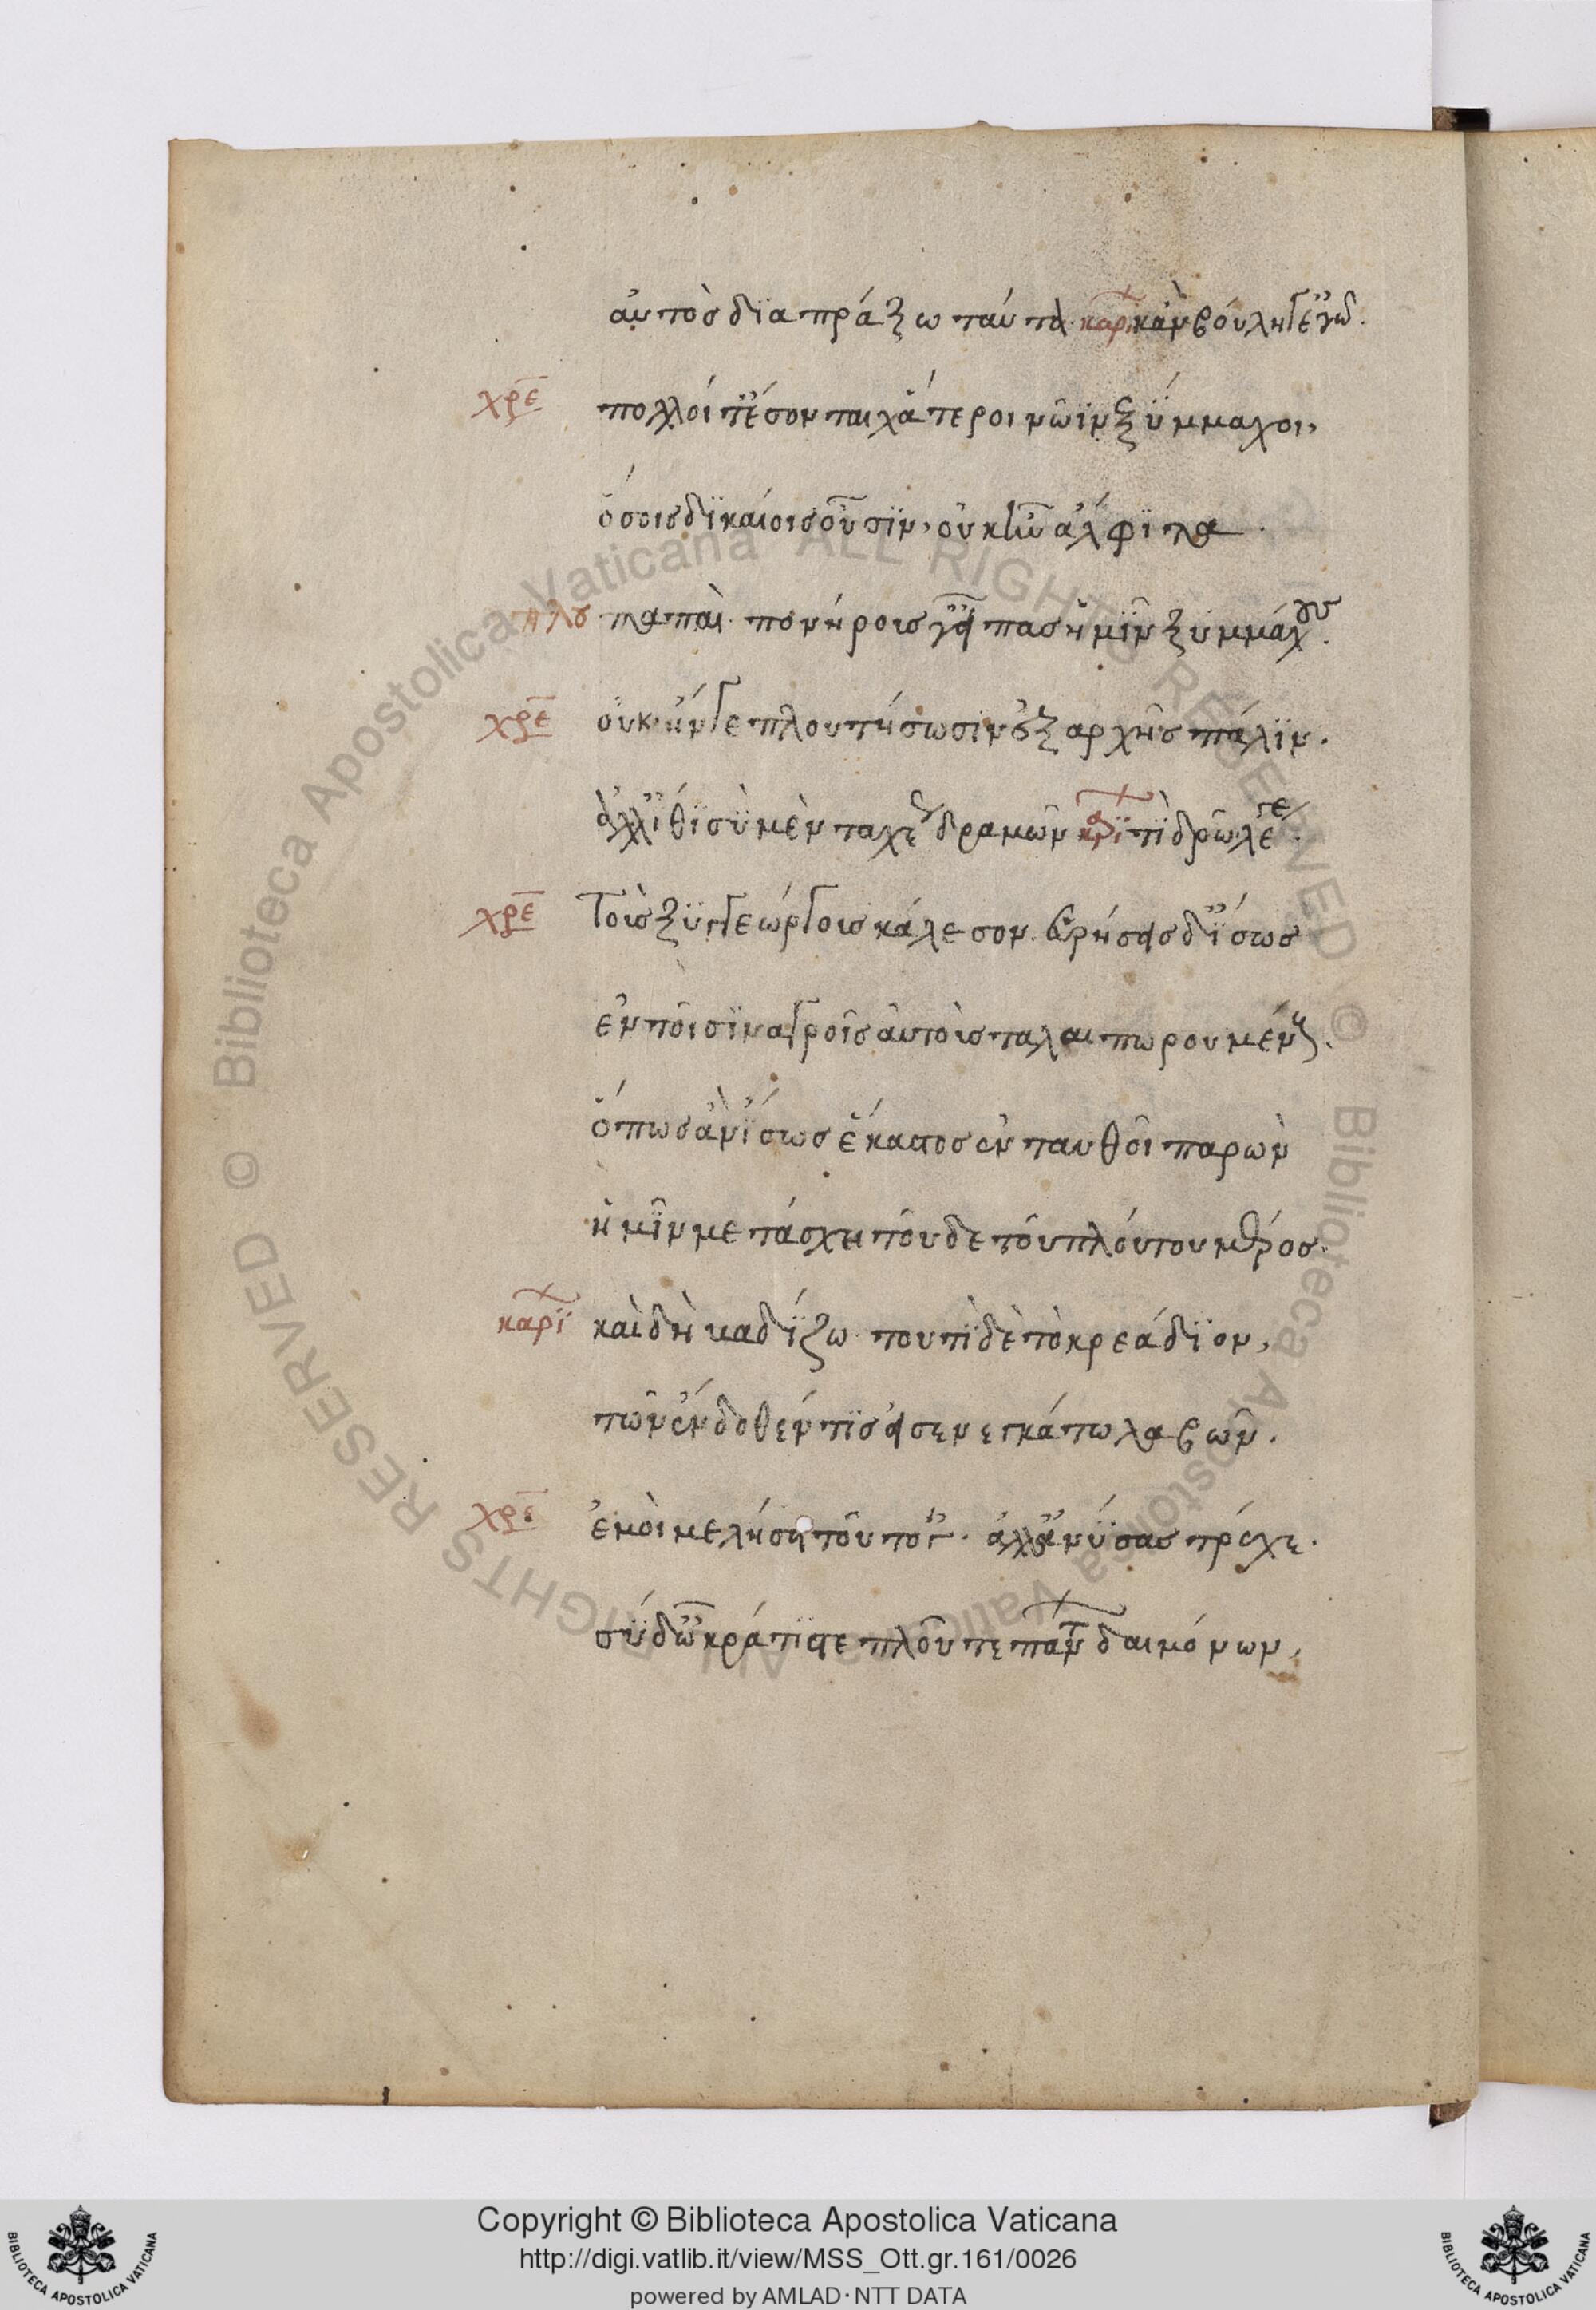 αὐτὸς διαπράξω ταῦτα. καρι κἂν βούλῃ γ' ἐγώ.
χρε πολλοί δ' ἔσονται χἄτεροι νῶϊν ξύμμαχοι,
ὅσοις δικαίοις οὖσιν, οὐκ ἦν ἄλφιτα
πλου παπαί. πονηρούς γ' εἶπας ἡμῖν ξυμμάχους.
χρε οὐκ ἤν γε πλουτήσωσιν ἐξ αρχῆς πάλιν.
ἀλλ' ἴθι σὺ μὲν ταχέως δραμὼν καρι τί δρῶ λέγε.
χρε τοὺς ξυγγεώργους κάλεσον. εὑρήσεις δ' ἴσως
ἐν τοῖσιν αγροῖς αὐτοὺς ταλαιπωρουμένους.
ὅπως ἂν ἴσως ἕκαστος ἐνταυθοῖ παρὼν
ἡμῖν μετάσχῃ τοῦδε τοῦ πλούτου μέρος.
καρι καὶ δὴ βαδίζω τουτὶ δὲ τὸ κρεάδιον,
τῶν ἔνδοθέν τις εἰσενεγκάτω λαβών.
χρε ἐμοὶ μελήσει τοῦτό γ'. ἀλλ' ἀνύσας τρέχε.
σὺ δ' ὦ κράτιστε πλοῦτε πάντων δαιμόνων,
Biblioteca Apostolica Vaticana ALL RIGHTS RESERVED © Biblioteca Apostolica Vaticana ALL RIGHTS RESERVED ©
Copyright © Biblioteca Apostolica Vaticana
http://digi.vatlib.it/view/MSS_Ott.gr.161/0026
powered by AMLAD·NTT DATA
BIBLIOTECA APOSTOLICA VATICANA
BIBLIOTECA APOSTOLICA VATICANA